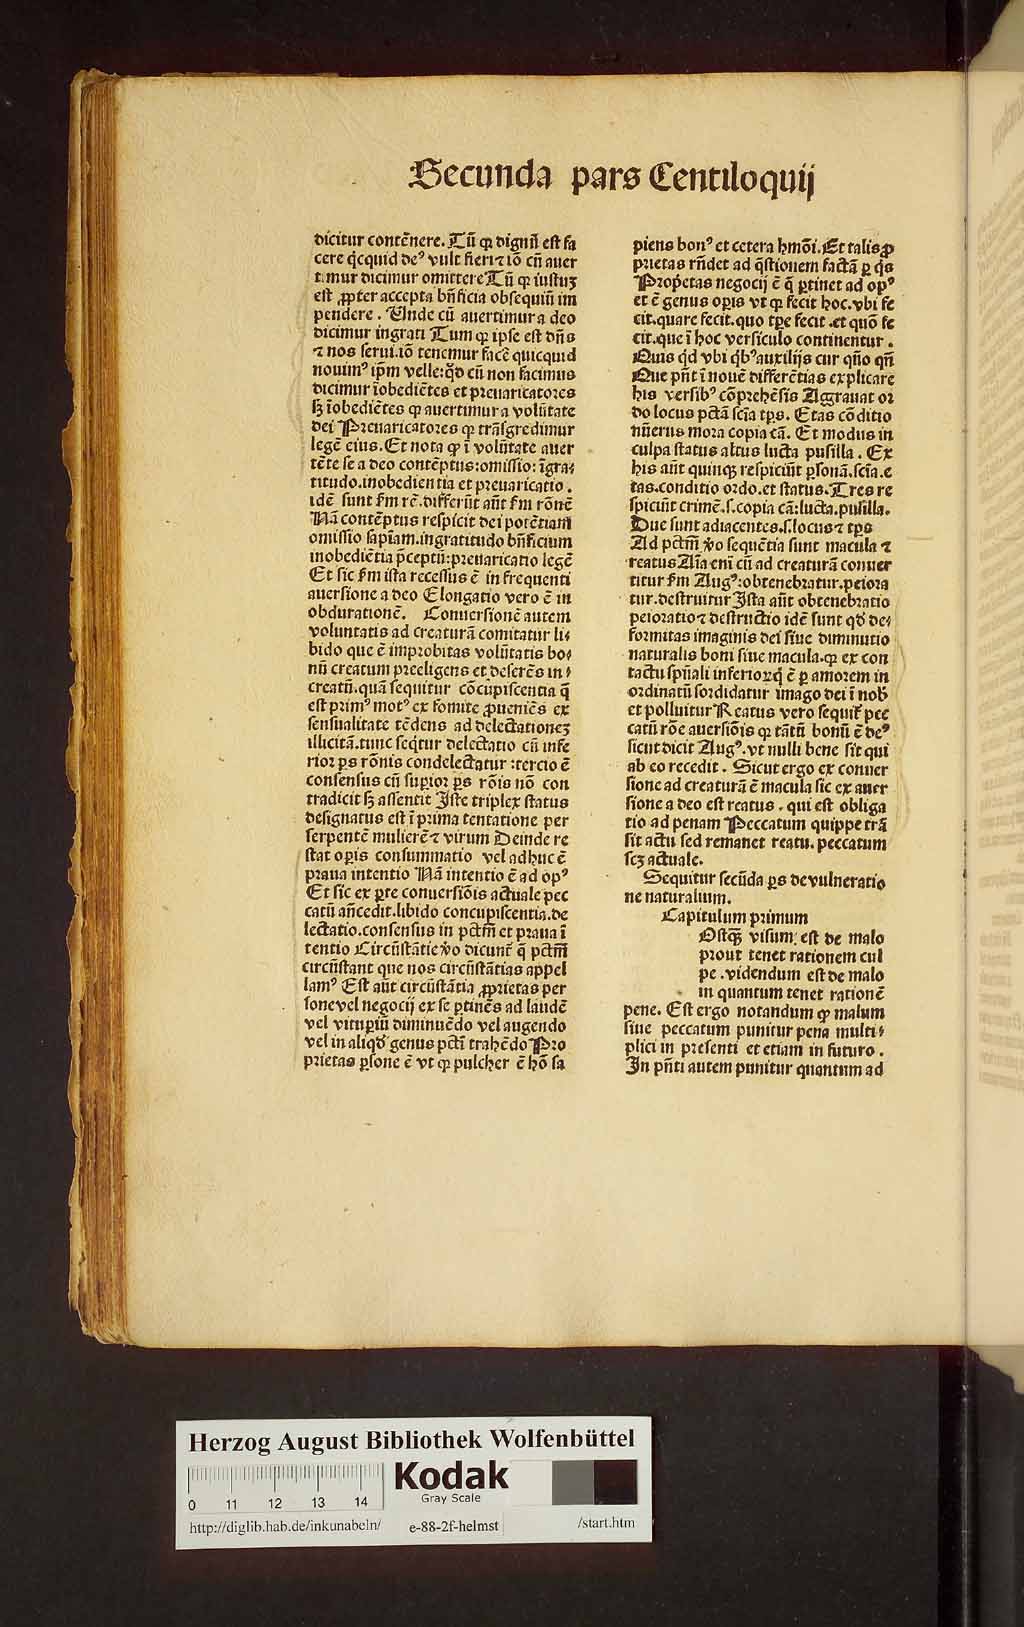 Secunda pars Centiloquij
dicitur contēnere. Tū qꝫ dignū est fa
cere qͥcquid deꝰ vult fieri ⁊ iō cū auer
timur dicimur omittere Tū qꝫ iustuꝫ
est ꝓpter accepta bn̄ficia obsequiū im
pendere. Unde cū auertimur a deo
dicimur ingrati Tum qꝫ ipse est dn̄s
⁊ nos serui. iō tenemur facēe quicquid
nouimꝰ ip̄m velle: qd̓ cū non facimus
dicimur īobediētes et preuaricatores
sꝫ īobediētes qꝫ auertimur a volūtate
dei Preuaricatores qꝫ trāsgredimur
legē eius. Et nota qꝫ ī volūtate auer
tēte se a deo contēptus: omissio: īgra⸗
titudo. inobedientia et preuaricatio.
idē sunt f̄m rē. differūt aūt f̄m rōnē
Nā contēptus respicit dei potētiam̄
omissio sapīam. ingratitudo bn̄ficium
inobediētia p̄ceptū: preuaricatio legē
Et sic f̄m ista recessus ē in frequenti
auersione a deo Elongatio vero ē in
obdurationē. Conuersionē autem
voluntatis ad creaturā comitatur li⸗
bido que ē improbitas volūtatis bo⸗
nū creatum preeligens et deserēs in⸗
creatū. quā sequitur cōcupiscentia q̄
est primꝰ motꝰ ex fomite ꝓueniēs ex
sensualitate tēdens ad delectationeꝫ
illicitā. tunc seqͥtur delectatio cū infe
rior ꝑs rōnis condelectatur: tercio ē
consensus cū suꝑior ꝑs rōis nō con
tradicit sꝫ assentit Iste triplex status
designatus est ī prima tentatione per
serpentē mulierē ⁊ virum Deinde re
stat oꝑis consummatio vel adhuc ē
praua intentio Nā intentio ē ad opꝰ
Et sic ex ꝑte conuersiōis actuale pec
catū an̄cedit. libido concupiscentia. de
lectatio. consensus in pctm̄ et praua ī
tentio Circūstātie v̊o dicunt̄ q̄ pctm̄
circūstant que nos circūstātias appel
lamꝰ Est aūt circūstātia ꝓprietas per
sone vel negocij ex se ꝑtinēs ad laudē
vel vituꝑiū diminuēdo vel augendo
vel in aliqd̓ genus pctī trahēdo Pro
prietas ꝑsone ē vt qꝫ pulcher ē hō sa
piens bonꝰ et cetera hmōi. Et talis ꝓ
prietas rn̄det ad qͥstionem factā ꝑ qͥs
Propͥetas negocij ē q̄ ꝑtinet ad opꝰ
et ē genus oꝑis vt qꝫ fecit hoc. vbi fe
cit. quare fecit. quo tꝑe fecit. et quō fe
cit. que ī hoc versiculo continentur.
Quis qͥd vbi qͥbꝰ auxilijs cur quō qn̄
Que pn̄t ī nouē differētias explicare
his versibꝰ cōprehēsis Aggrauat or
do locus pctā scīa tꝑs. Etas cōditio
nūerus mora copia cā. Et modus in
culpa status altus lucta pusilla. Ex
his aūt quinqꝫ respiciūt ꝑsonā. scīa. e
tas. conditio ordo. et status. Tres re
spiciūt crimē. s. copia cā: lucta. pusilla.
Due sunt adiacentes. s. locus ⁊ tꝑs
Ad pctm̄ v̊o sequētia sunt macula ⁊
reatus Aīa enī cū ad creaturā conuer
titur f̄m Augꝰ: obtenebratur. peiora
tur. destruitur Ista aūt obtenebratio
peioratio ⁊ destructio idē sunt qd̓ de⸗
formitas imaginis dei siue diminutio
naturalis boni siue macula. qꝫ ex con
tactu spūali inferiorꝫ q̄ ē ꝑ amorem in
ordinatū sordidatur imago dei ī nob̓
et polluitur Reatus vero sequit̄ pec
catū rōe auersiōis qꝫ tātū bonū ē deꝰ
sicut dicit Augꝰ. vt nulli bene sit qui
ab eo recedit. Sicut ergo ex conuer
sione ad creaturā ē macula sic ex auer
sione a deo est reatus. qui est obliga
tio ad penam Peccatum quippe trā
sit actu sed remanet reatu. peccatum
scꝫ actuale.
Sequitur secūda ꝑs de vulneratio
ne naturalium.
Capitulum primum
Ostqꝫ visum est de malo
prout tenet rationem cul
pe. videndum est de malo
in quantum tenet rationē
pene. Est ergo notandum qꝫ malum
siue peccatum punitur pena multi⸗
plici in presenti et etiam in futuro.
In pn̄ti autem punitur quantum ad
Herzog August Bibliothek Wolfenbüttel
Kodak
Gray Scale
0 11 12 13 14
http://diglib.hab.de/inkunabeln/ e-88-2f-helmst /start.htm